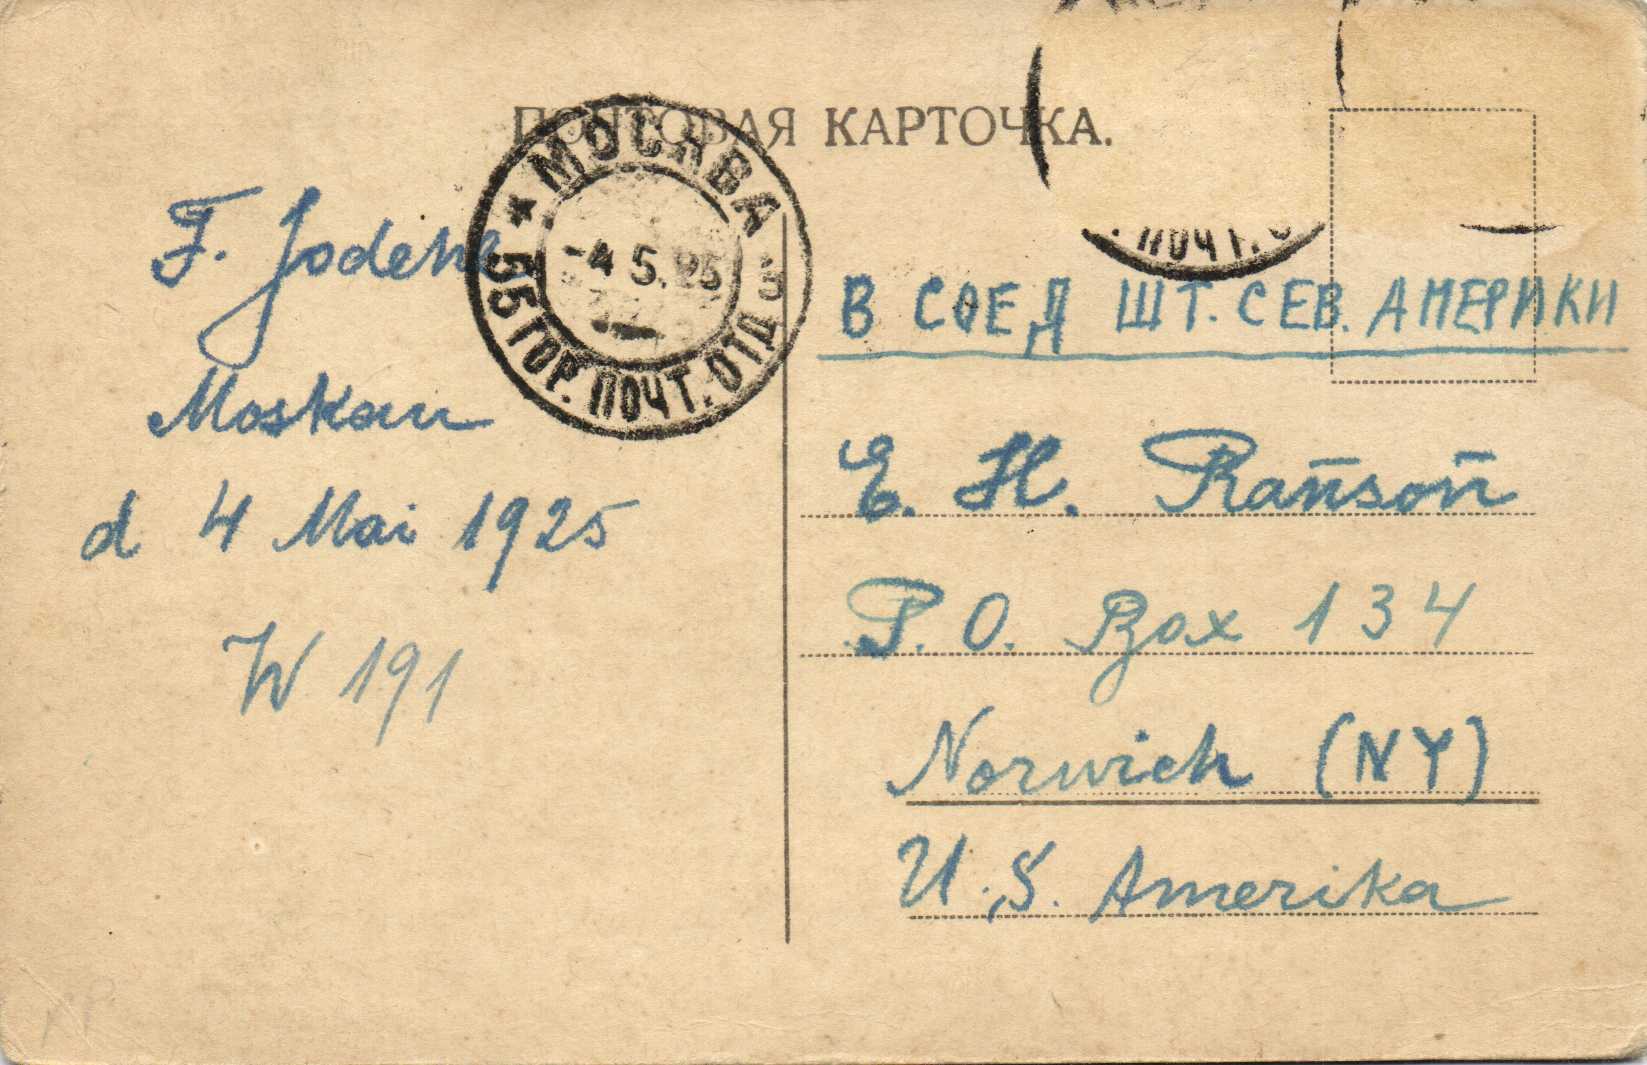 ПОЧТОВАЯ КАРТОЧКА.
МОСКВА
-4 5. 25
55 ГОР. ПОЧТ. ОТД
ПОЧТ.
F. Jodehl
Moskau
d 4 Mai 1925
W 191
В СОЕД ШТ. СЕВ. АМЕРИКИ
E. H. Ranson
P. O. Box 134
Norwich (NY)
U. S. Amerika